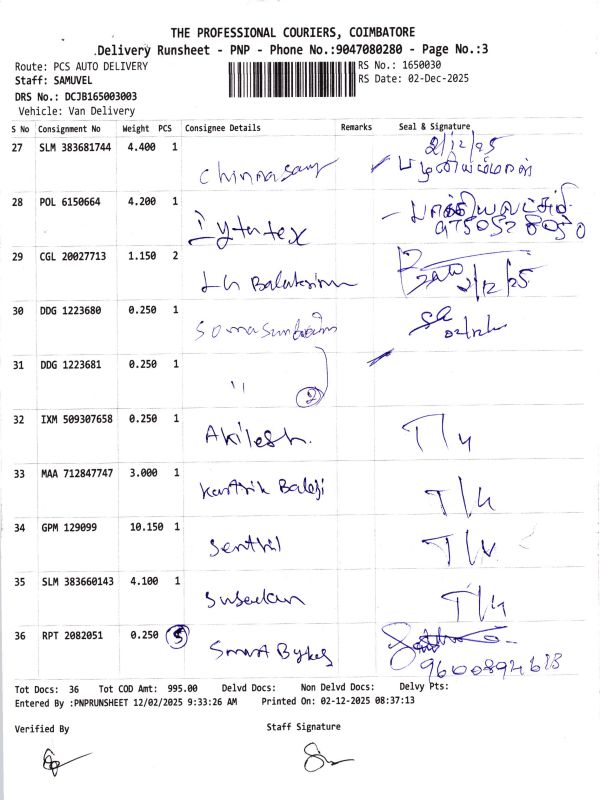 THE PROFESSIONAL COURIERS, COIMBATORE
Delivery Runsheet - PNP - Phone No.:9047080280 - Page No.:3
Route: PCS AUTO DELIVERY
RS No.: 1650030
Staff: SAMUVEL
RS Date: 02-Dec-2025
DRS No.: DCJB165003003
Vehicle: Van Delivery
S No Consignment No Weight PCS Consignee Details Remarks Seal & Signature
27 SLM 383681744 4.400 1 Chinnasamy 2/12/25
பழனியம்மாள்
28 POL 6150664 4.200 1
29 CGL 20027713 1.150 2 2/12/25
30 DDG 1223680 0.250 1 02/12/
31 DDG 1223681 0.250 1 " 2
32 IXM 509307658 0.250 1 Akilesh.
33 MAA 712847747 3.000 1 Karthik Balaji
34 GPM 129099 10.150 1 Senthil
35 SLM 383660143 4.100 1
36 RPT 2082051 0.250 5 Smart Bykes
9600894613
Tot Docs: 36 Tot COD Amt: 995.00 Delvd Docs: Non Delvd Docs: Delvy Pts:
Entered By :PNPRUNSHEET 12/02/2025 9:33:26 AM Printed On: 02-12-2025 08:37:13
Verified By Staff Signature